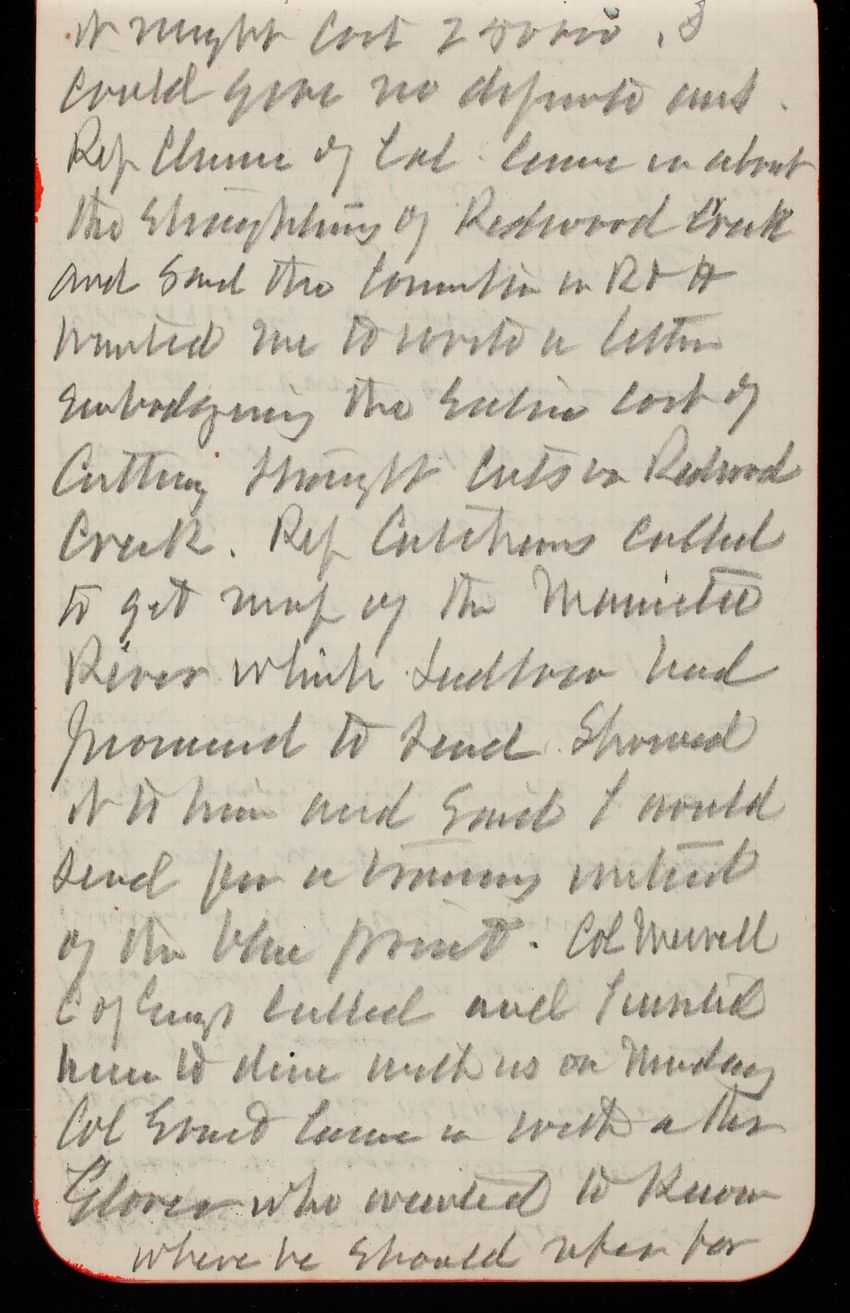 it might cost 25000. I
could give no definite ans.
Rep Clunie of Cal. came in about
the straightening of Redwood Creek
and said the Committee in R & H
wanted me to write a letter
embodying the entire cost of
Cutting straight cuts in Redwood
Creek. Rep Cutcheons called
to get map of the Manistee
River which Ludlow had
promised to send. Showed
it to him and said I would
send for a tracing instead
of the blue print. Col Merrill
C of Engs called and I invited
him to dine with us on Monday
Col came in with a Mr
Glover who wanted to know
where he should refer for